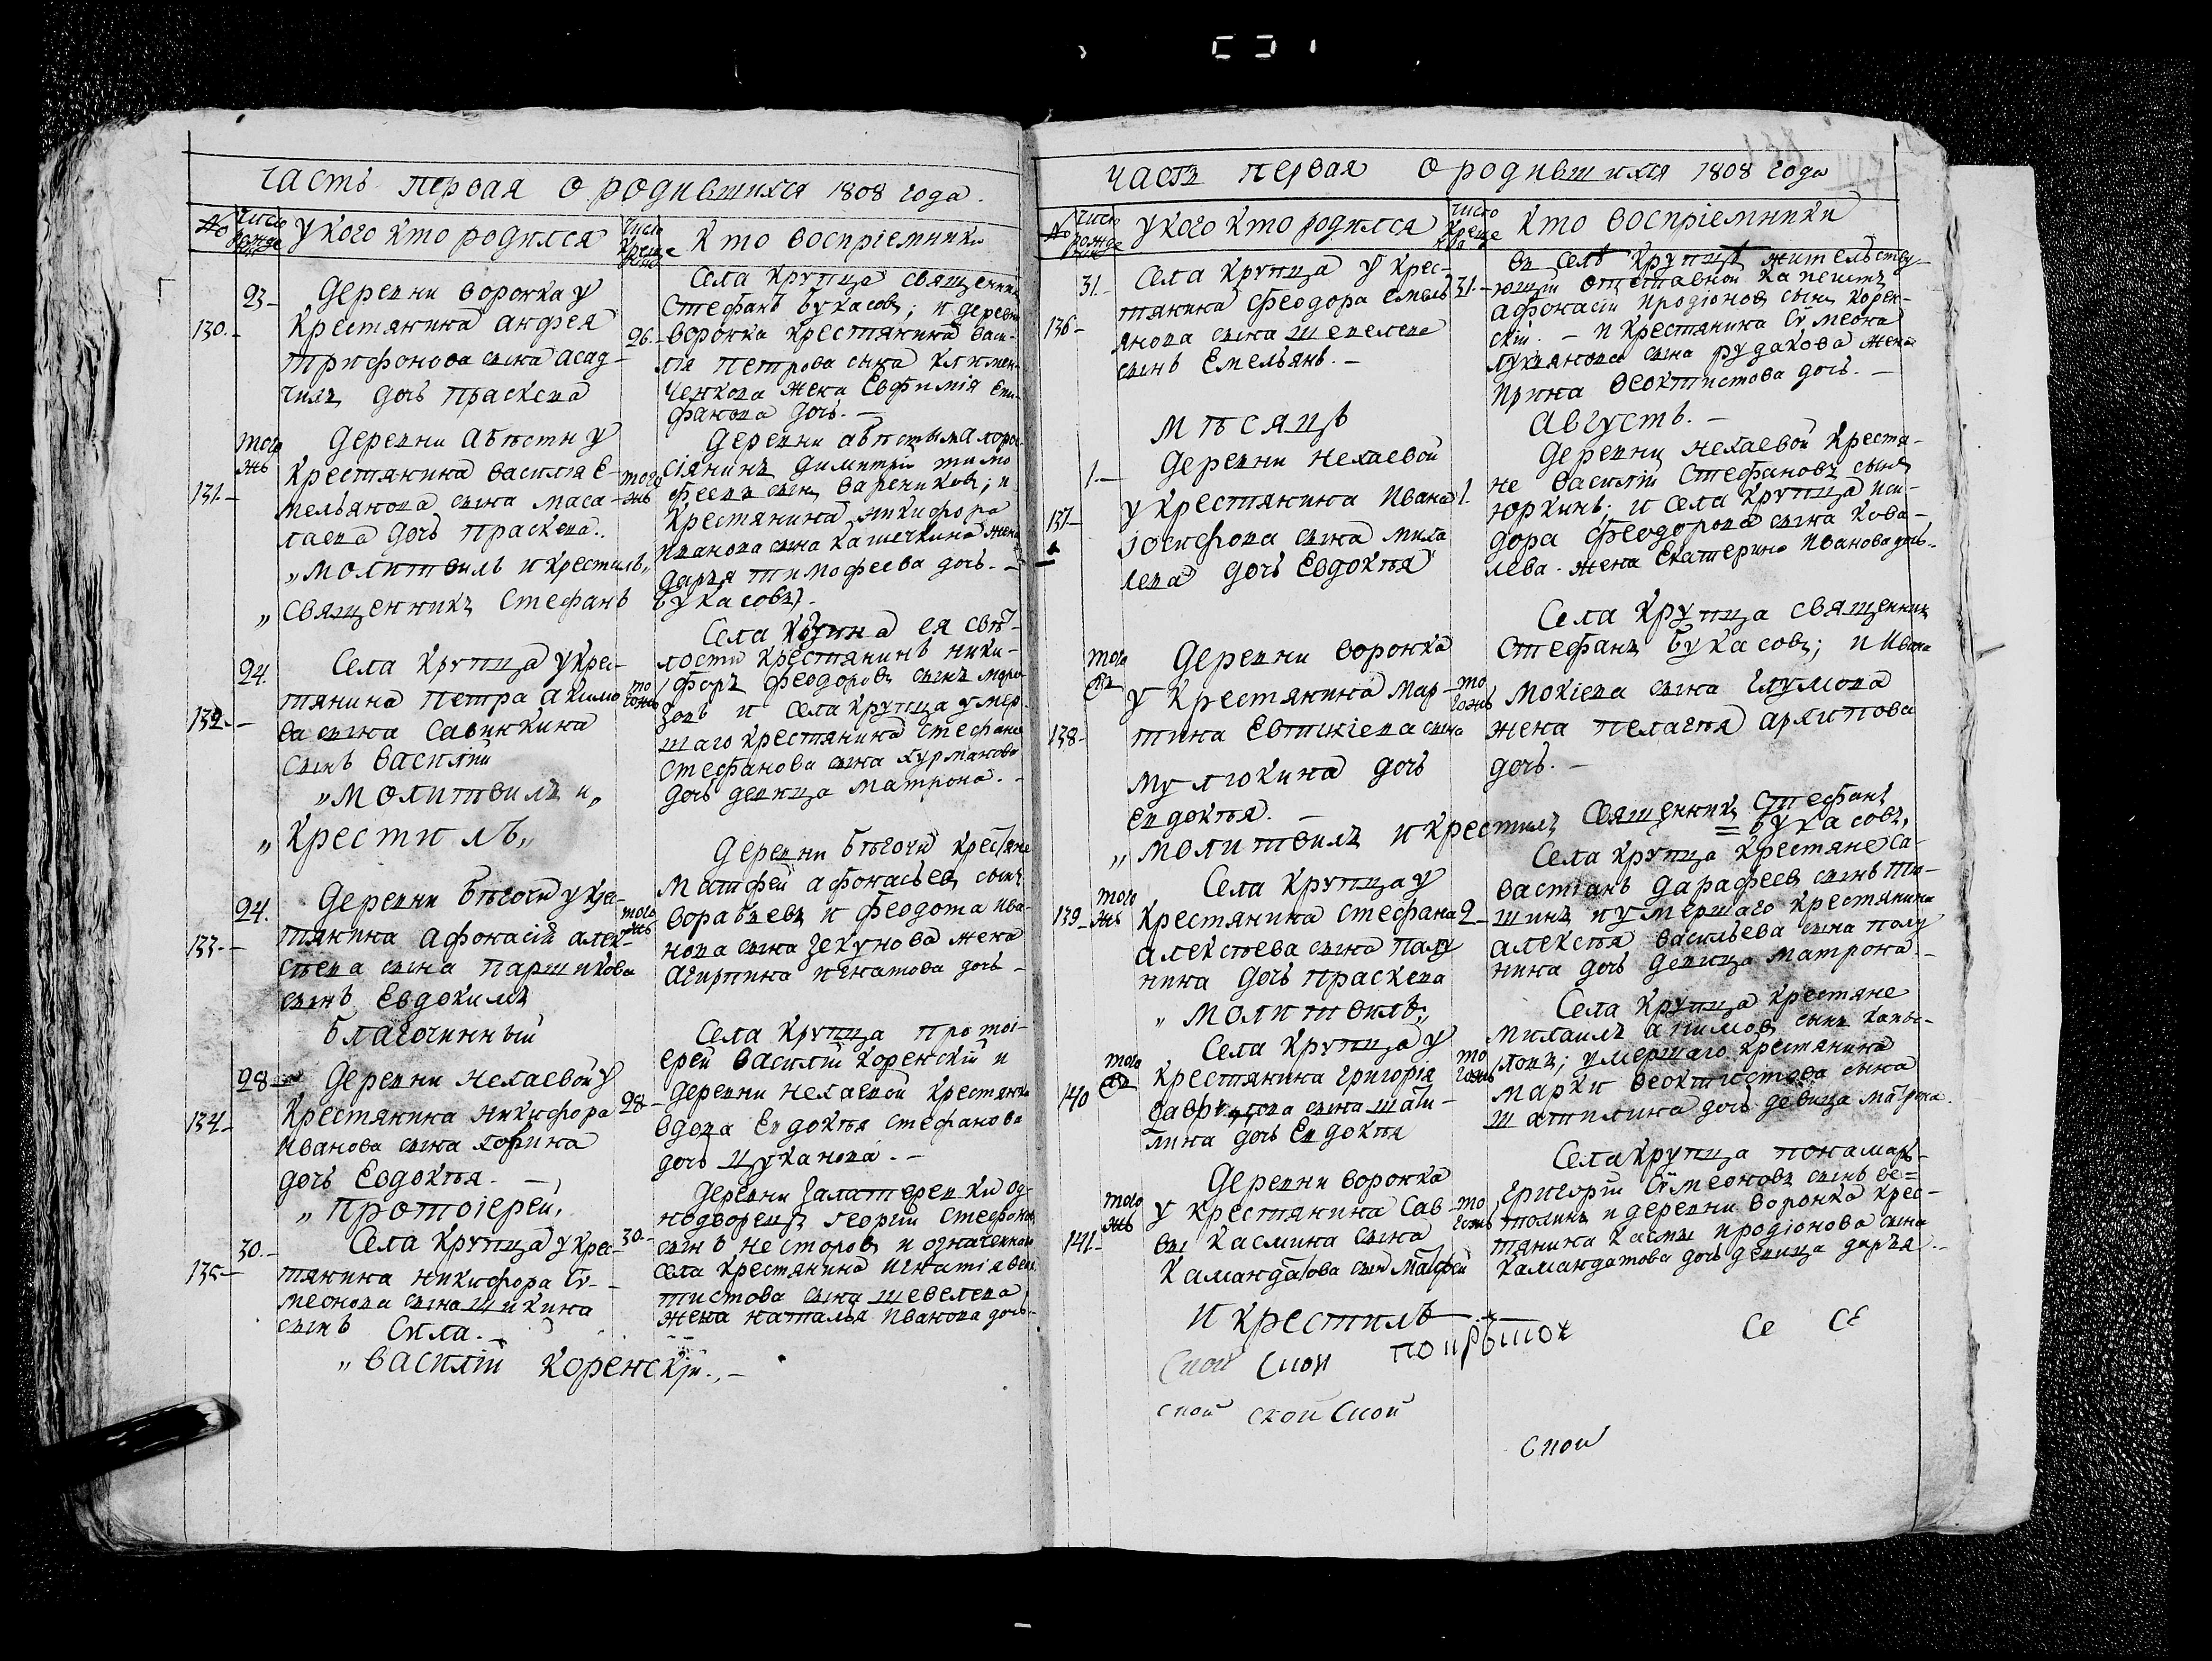 Часть первая о родившихся 1808 года.
№ Число рожде нія
У кого кто родился
Число креще нія
Кто воспріемники
23.- Деревни Воронка у
130.- крестянина Анфея
Трифонова сына Асад-
чихъ дочь Праскева
26.-
Села Крупца священникъ
Стефанъ Букасовъ; и деревни
Воронка крестянина Васи-
лія Петрова сына Климен-
ченкова жена Евфимія Епи-
фанова дочь.-
того жъ Деревни у
131.- крестянина Василія Е-
мельянова сына Маса-
лаева дочь Праскева.
того жъ
Деревни малорос-
сіянинъ Димитрій Тимо
феевъ сынъ Варениковъ; и
крестянина Никифора
Иванова сына Кашечкина жена
Дарья Тимофеева дочь.-
„Молитвилъ и крестилъ„
„Священникъ Стефанъ Букасовъ).
24. Села Крупца у крес-
132.- тянина Петра Акимо
ва сына Савинкина
сынъ Василій
то гожъ
Села ея свѣт-
лости крестянинъ Ники-
форъ Феодоровъ сынъ Моро-
зовъ и села Крупца умер-
шаго крестянина Стефана
Стефанова сына Курманова
дочь девица Матрона.-
„Молитвилъ и„
„Крестилъ„
24. Деревни Бѣгочи у кре-
133.- тянина Афонасія Алек-
сѣева сына Паршикова
сынъ Евдокимъ
того жъ
Деревни Бѣгочи крестяне
Матфей Афонасьевъ сынъ
Воробьевъ и Феодота Ива-
нова сына Зекунова жена
Агирпина Игнатова дочь-
Благочинный
28 Деревни Нехаевой у
134- крестянина Никифора
Иванова сына Горина
дочь Евдокѣя.-
28-
Села Крупца протоі-
ерей Василій Коренскій и
деревни Нехаевой крестянка
вдова Евдокѣя Стефанова
дочь Цуканова.-
„Протоіерей,
30.- Села Крупца у крес-
135- тянина Никифора Сѵ-
меонова сына Шикина
сынъ Сила.-
30.-
Деревни Залатаревки од-
нодворецъ Георгій Стефановъ
сынъ Несторовъ и означеннаго
села крестянина Игнатія Феок
тистова сына Шевелева
жена Наталья Иванова дочь-
„Василій Коренскій.,-
Часть первая о родившихся 1808 года
№ Число рожде нія
У кого кто родился
Число креще нія
Кто воспріемники
31.- Села Крупца у крес-
136- тянина Феодора Емель
янова сына Шевелева
сынъ Емельянъ.-
31.-
Въ селѣ Крупцѣ жительству-
ющій отставной капеистъ
Афонасій Иродіоновъ сынъ Корен-
скій.- и крестянина Сѵмеона
Лукьянова сына Рудакова жена
Ирина Феоктистова дочь.-
Мѣсяцъ Августъ.-
1.- Деревни Нехаевой
137- у крестянина Ивана
Іосифова сына Миха
лева дочь Евдокѣя
1.
Деревни Нехаевой крестя-
не Василій Стефановъ сынъ
Юркинъ; и села Крупца Иси-
дора Феодорова сына Кова-
лева. жена Екатерина Иванова дочь-
того Деревни Воронка
138- у крестянина Мар-
тина Евтихіева сына
Мулюкина дочь
Евдокѣя.-
то гожъ
Села Крупца священникъ
Стефанъ Букасовъ; и Ивана
Мокіева сына Глумова
жена Пелагѣя Архипова
дочь.-
„Молитвилъ и крестилъ Священникъ Стефанъ
=Букасовъ.
того жъ Села Крупца у
139- крестянина Стефана
Алексѣева сына Полу
нина дочь Праскева
2-
Села Крупца крестяне Са-
вастіанъ Дарафеевъ сынъ Ти-
шинъ и умершаго крестянина
Алексѣя Васильева сына Полу
нина дочь девица Матрона.-
„Молитвилъ„
того Села Крупца у
140 крестянина Григорія
Гаврилова сына Шати-
лина дочь Евдокѣя
то гожъ
Села Крупца крестяне
Михаилъ Акимовъ сынъ Капы-
ловъ; умершаго крестянина
Марки Феоктистова сына
Шатилина дочь девица Матрона.
того жъ Деревни Воронка
141- у крестянина Сав-
вы Касмина сына
Камандатова сынъ Матфей
то гожъ
Села Крупца понамарь
Григорій Сѵмеоновъ сынъ Ве=
толинъ и деревни Воронка крес-
тянина Касмы Иродіонова сына
Камандатова дочь девица Дарья.-
И крестилъ
Се Се